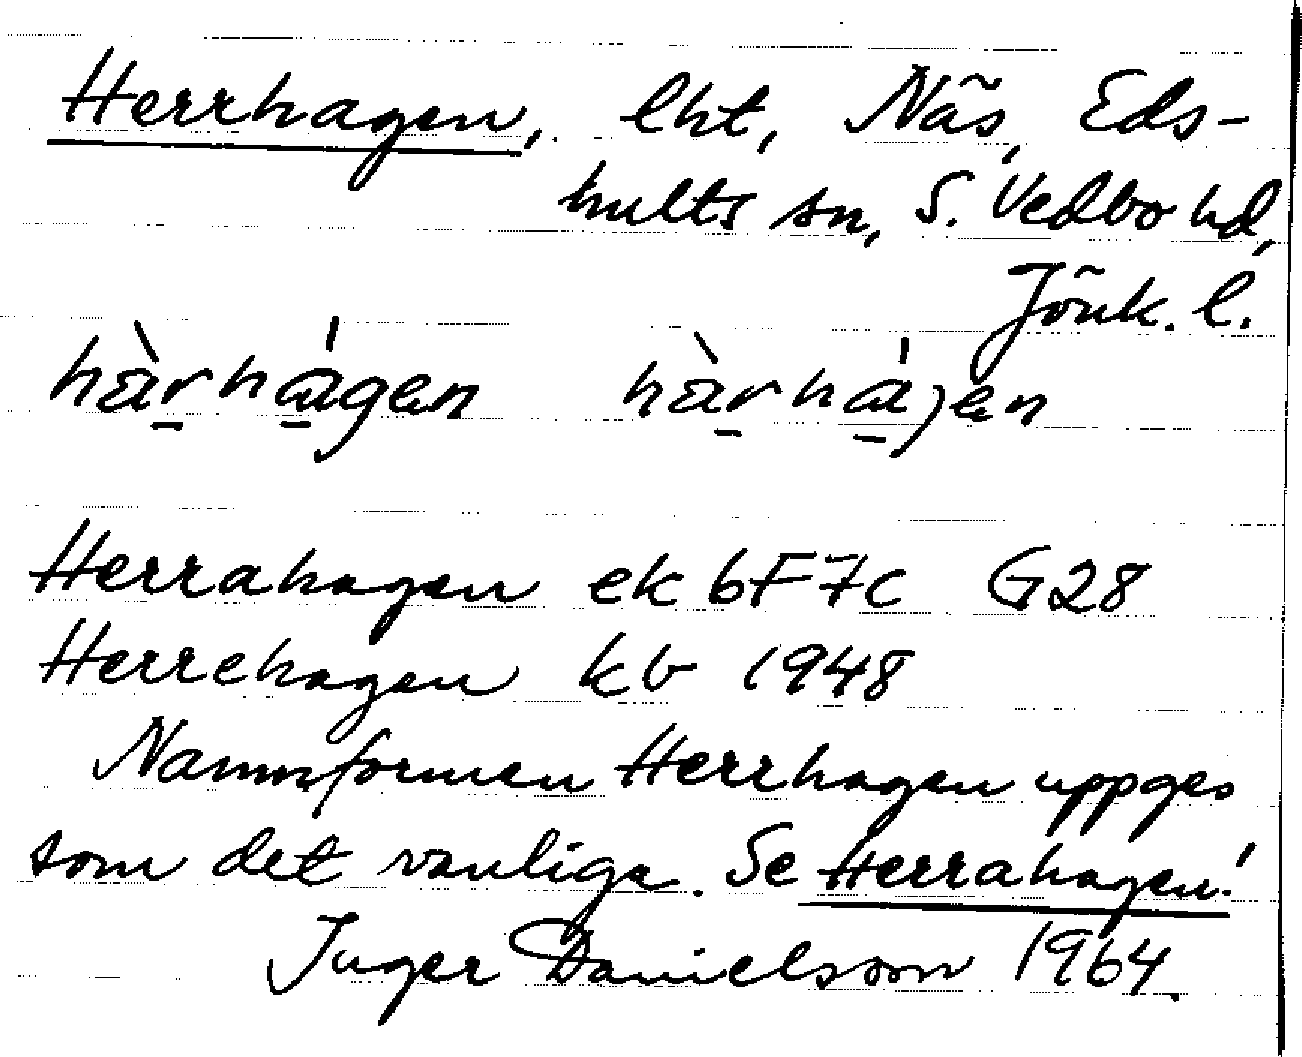 Herrhagen, lht, Näs, Eds-
hults sn, S. Vedbo hd,
Jönk. l.
hàrhágen hàrhájen
Herrahagen ek bF7c G28
Herrehagen kb 1948
Namnformen Herrhagen uppges
som det vanliga. Se Herrahagen!
Inger Danielsson 1964.